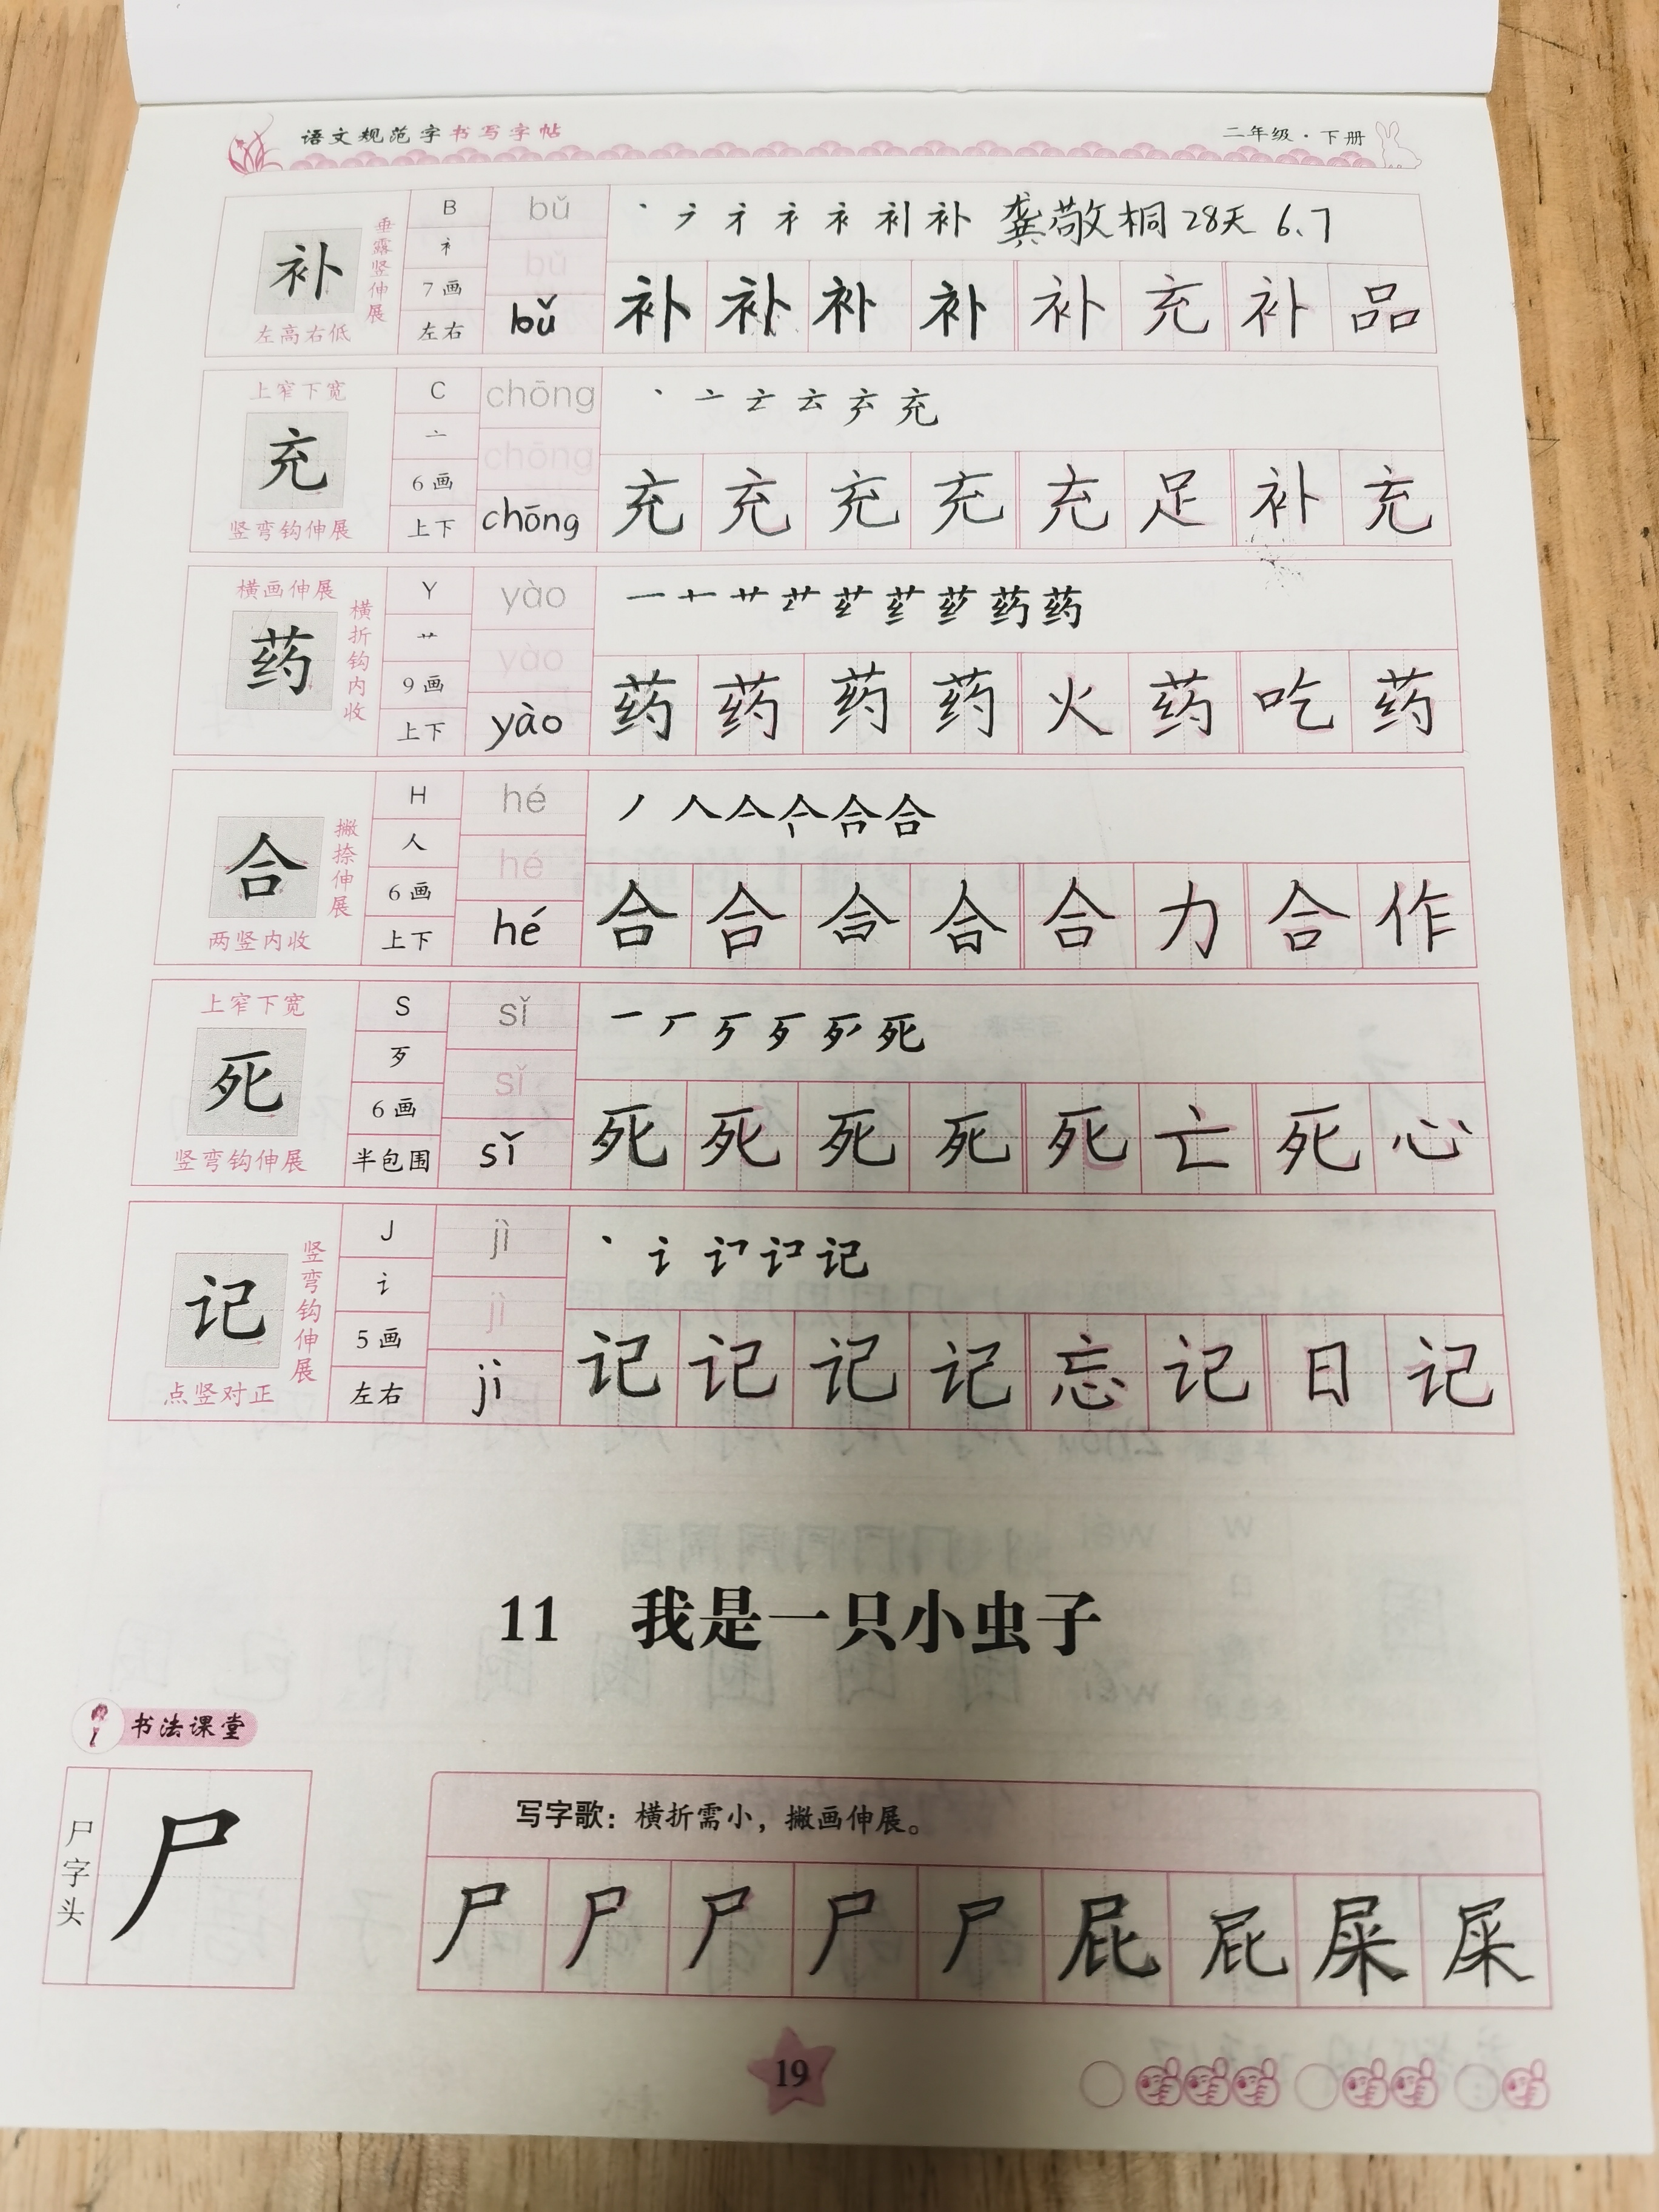 语文规范字书写字帖
二年级·下册
补
垂露竖伸展
左高右低
B
衤
7画
左右
bǔ
bǔ
bǔ
龚敬桐 28天 6.7
补 补 补 补 补 充 补 品
上窄下宽
充
竖弯钩伸展
C
亠
6画
上下
chōng
chōng
chōng
充
充 充 充 充 充 足 补 充
横画伸展
药
横折钩内收
Y
艹
9画
上下
yào
yào
yào
药
药 药 药 药 火 药 吃 药
合
撇捺伸展
两竖内收
H
人
6画
上下
hé
hé
hé
合
合 合 合 合 合 力 合 作
上窄下宽
死
竖弯钩伸展
S
歹
6画
半包围
sǐ
sǐ
sǐ
死
死 死 死 死 死 亡 死 心
记
竖弯钩伸展
点竖对正
J
讠
5画
左右
jì
jì
jì
记
记 记 记 记 忘 记 日 记
11 我是一只小虫子
书法课堂
尸字头
尸
写字歌：横折需小，撇画伸展。
尸 尸 尸 尸 尸 屁 屁 屎 屎
19